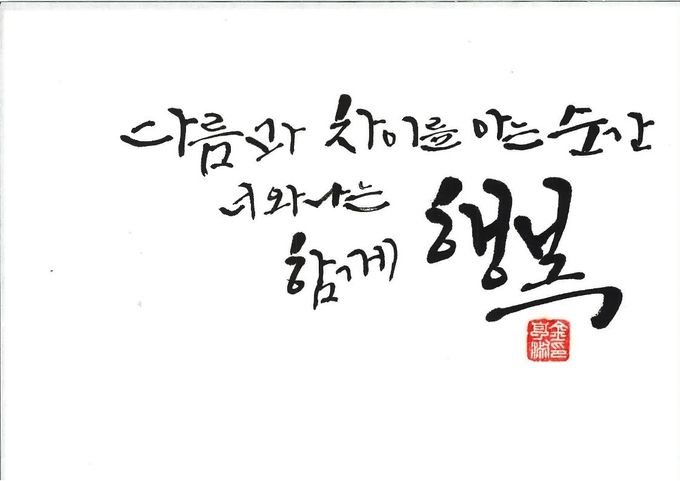 다름과 차이를 아는 순간
너와 나는
함께 행복